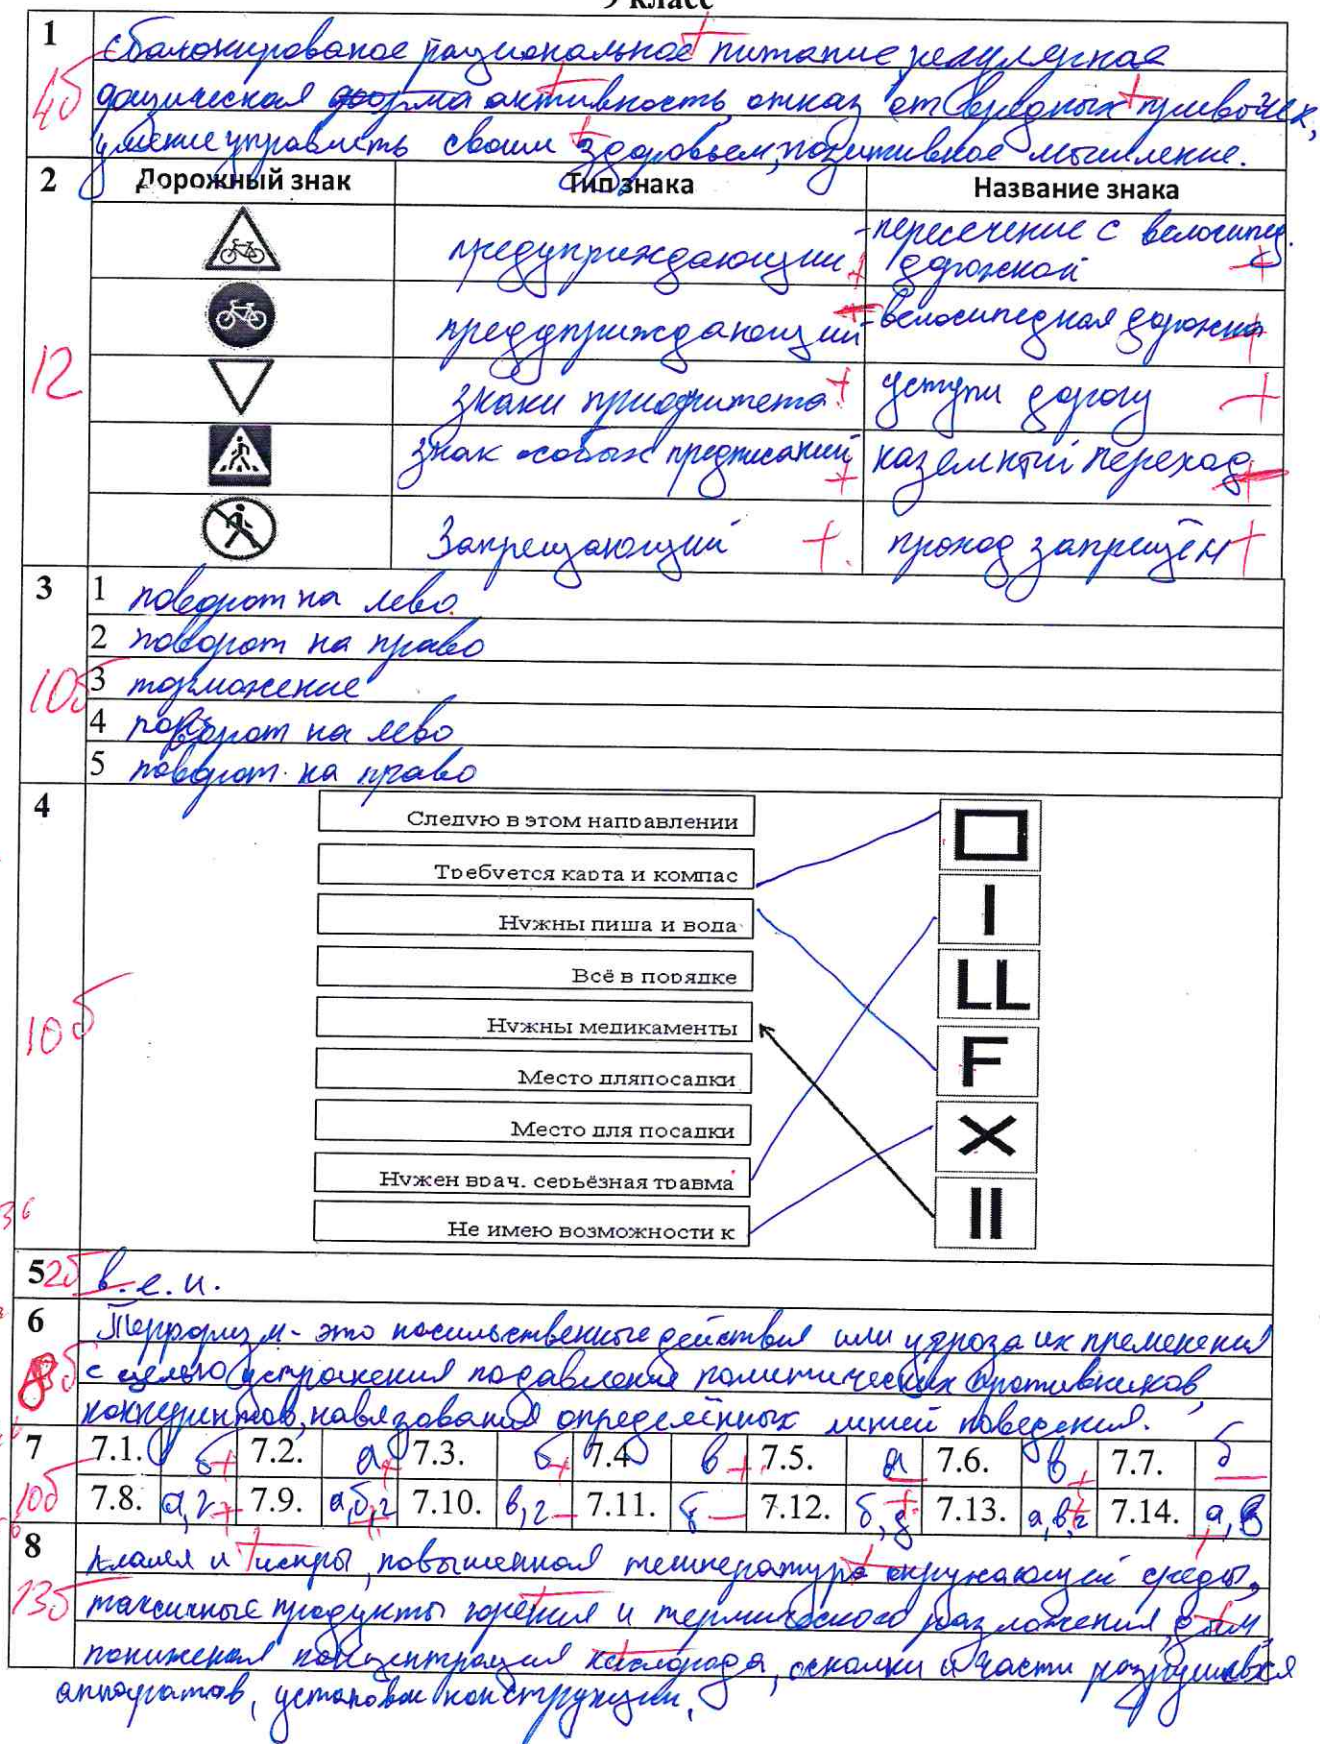 9 класс
1 сбалонированое рациональное питание, регулярная
4б физическая форма активность, отказ от вредных привычек,
умение управлять своим здоровьем, позитивное мышление.
2 Дорожный знак Тип знака Название знака
предуприждающий - пересечение с велосипед. дорожкой
12 предуприждающий - велосипедная дорожка
знаки приоритета уступи дорогу
знак особых предписаний наземный переход
Запрещающий проход запрещён
3 1 поворот на лево
2 поворот на право
10б 3 торможение
4 поворот на лево
5 поворот на право
4 Следую в этом направлении
Требуется карта и компас
Нужны пища и вода I
Всё в порядке LL
10б Нужны медикаменты F
Место дляпосадки
Место для посадки X
Нужен врач, серьёзная травма
Не имею возможности к II
5 2б в. е. и.
6 Терроризм - это насильственные действия или угроза их пременения
8б с целью устрожения подавления политических противников,
конкурентов, навязования определённых линей поведения.
7 7.1. б 7.2. а 7.3. б 7.4 в 7.5. а 7.6. в 7.7. б
10б 7.8. а,г 7.9. а,б,г 7.10. в,г 7.11. б 7.12. б,д 7.13. а,в,г 7.14. а,в
8 пламя и искры, повышенная температура окружающей среды,
13б токсичные продукты горения и термического разложения, дым,
пониженая концентрация кислорода, осколки и части разрушевхся
аппаратов, установок конструкции.